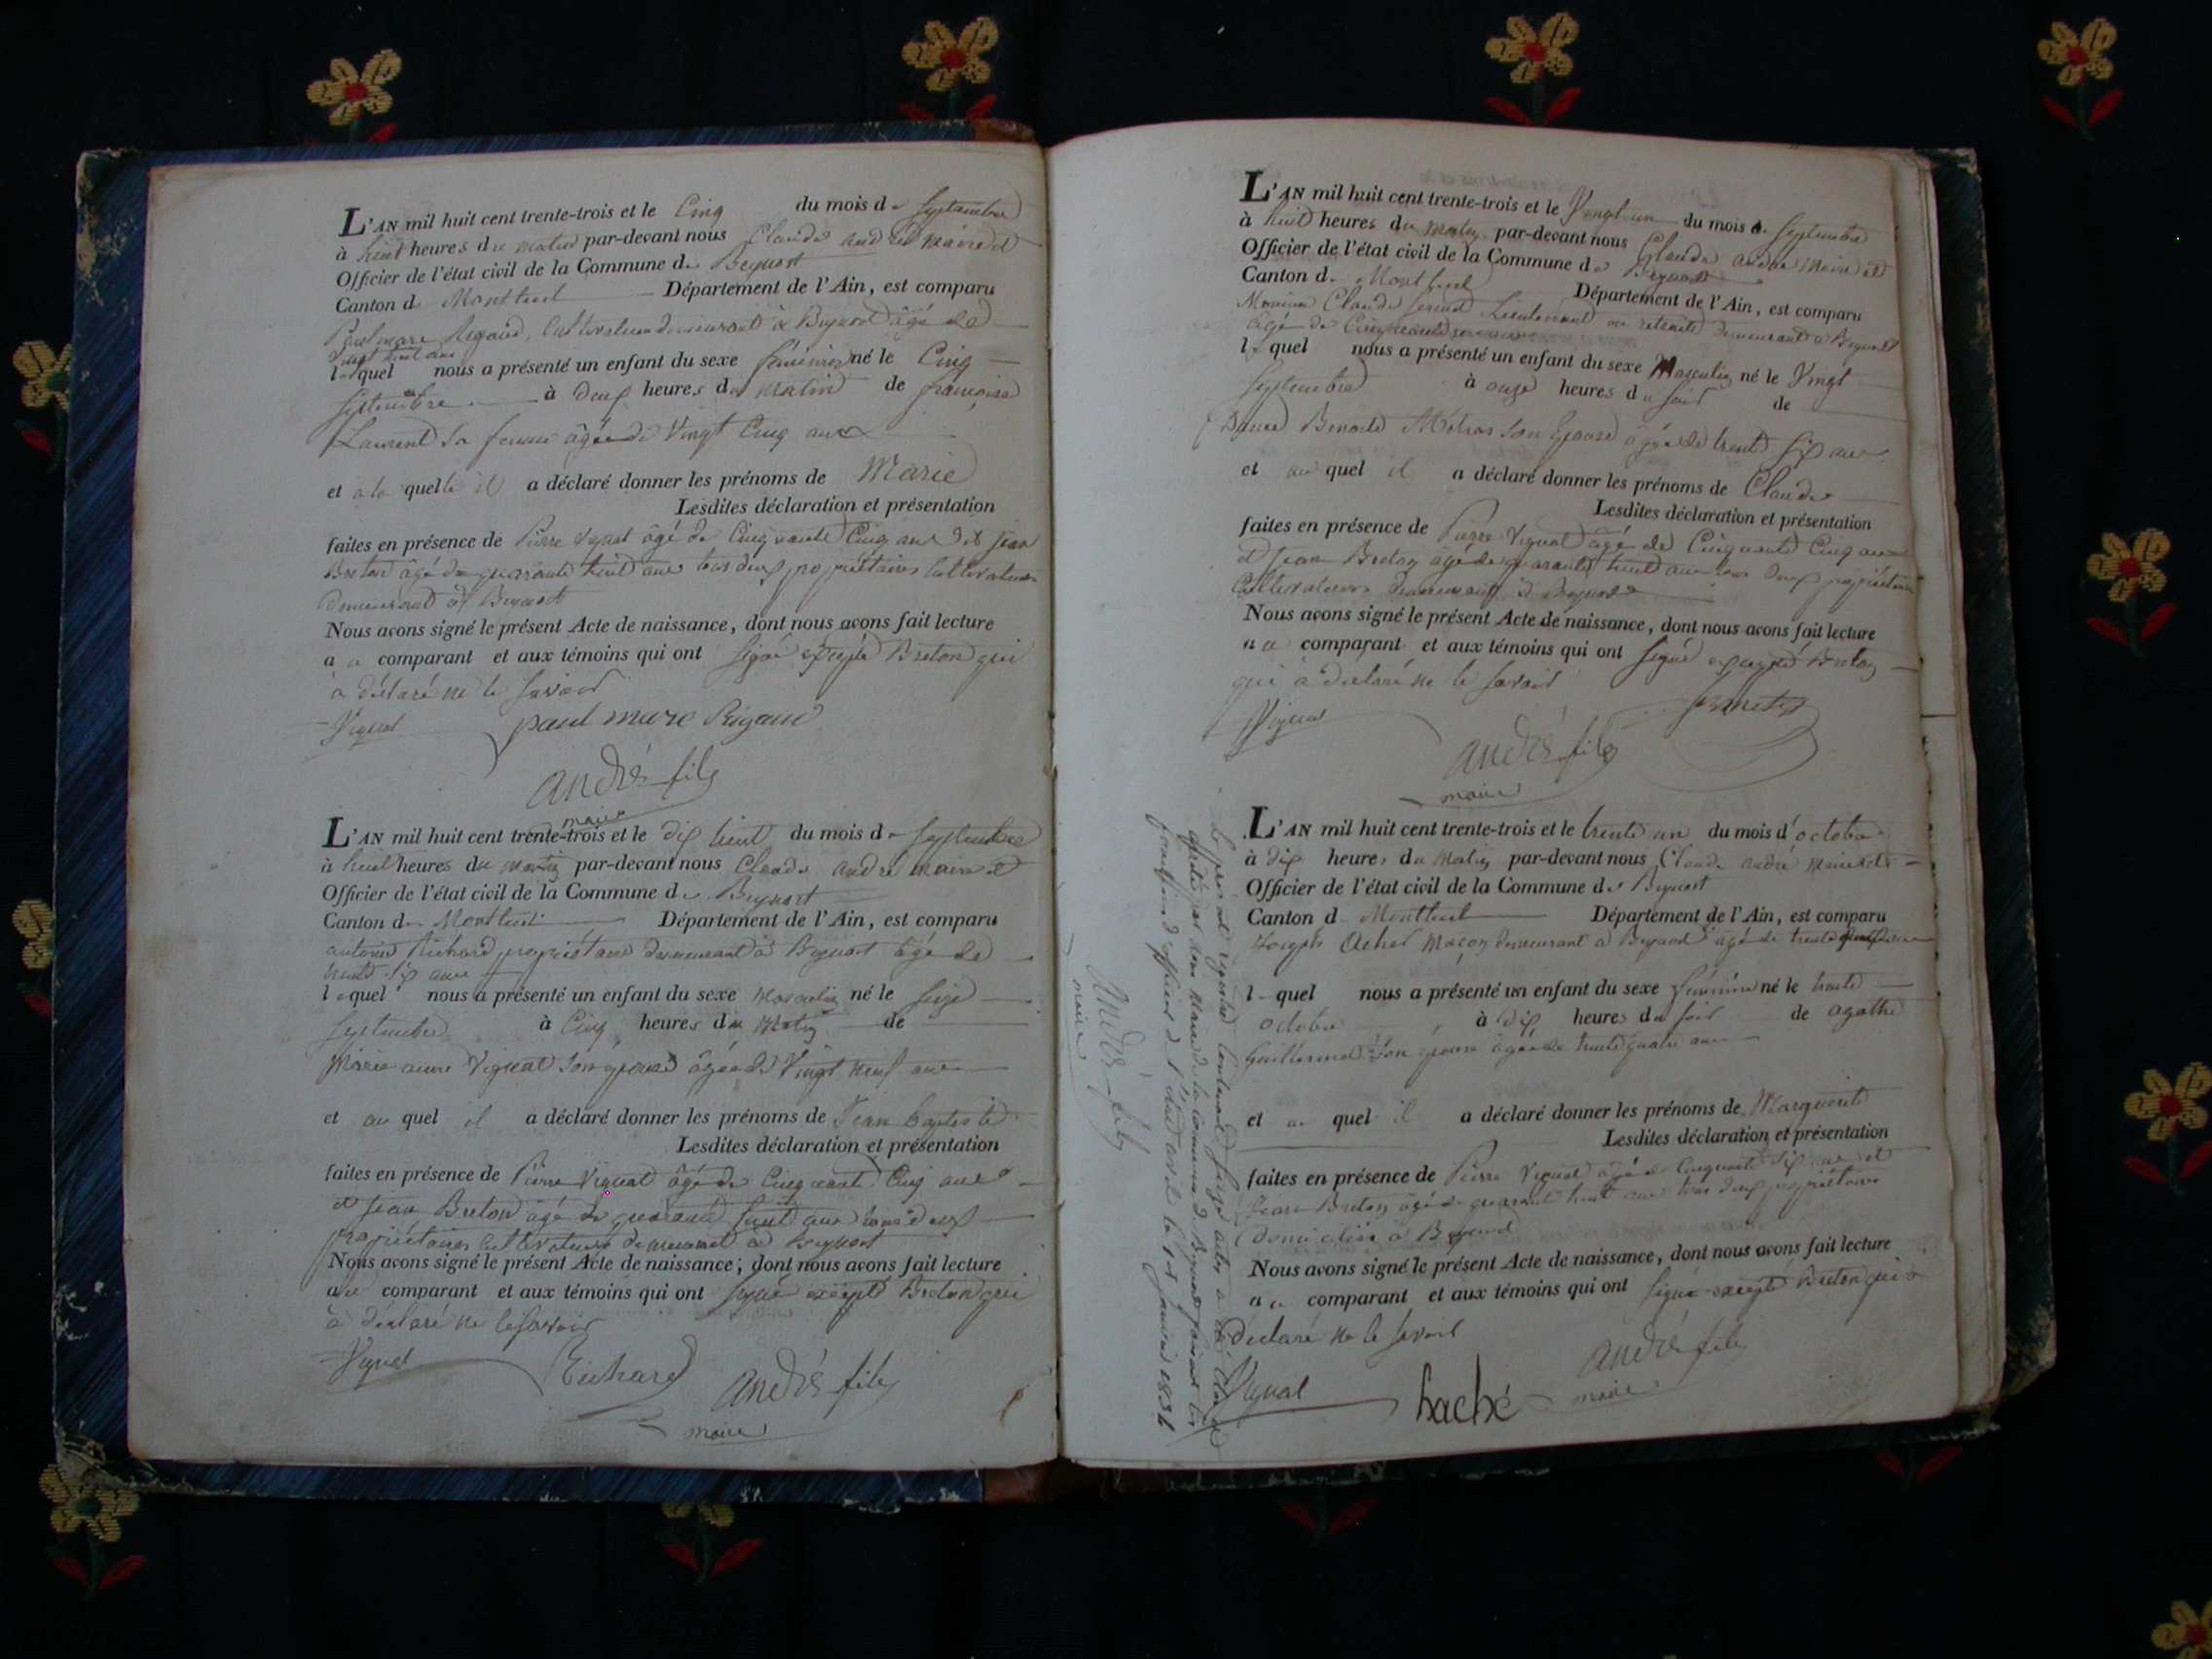 L'AN mil huit cent trente-trois et le Cinq du mois de Septembre
à huit heures du matin par-devant nous Claude andré maire et
Officier de l'état civil de la Commune de Beynost
Canton de Montluel Département de l'Ain, est comparu
Paul marc Rigaud, Cultivateur demeurant à Beynost âgé de
Vingt huit ans
lequel nous a présenté un enfant du sexe féminin né le Cinq
Septembre à deux heures du matin de françoise
Laurent sa femme âgée de Vingt Cinq ans
et a la quelle il a déclaré donner les prénoms de Marie
Lesdites déclaration et présentation
faites en présence de Pierre Vignat âgé de Cinquante Cinq ans et jean
Breton âgé de quarante huit ans tous deux propriétaires Cultivateurs
demeurant à Beynost
Nous avons signé le présent Acte de naissance, dont nous avons fait lecture
au comparant et aux témoins qui ont signé excepté Breton qui
a déclaré ne le savoir
Vignat paul marc Rigaud
andré fils
maire
L'AN mil huit cent trente-trois et le dix huit du mois de Septembre
à huit heures du matin par-devant nous Claude andré maire et
Officier de l'état civil de la Commune de Beynost
Canton de Montluel Département de l'Ain, est comparu
antoine Richard propriétaire demeurant à Beynost âgé de
trente six ans
lequel nous a présenté un enfant du sexe Masculin né le Seize
Septembre à Cinq heures du Matin de
Marie anne Vignat son épouse âgée de Vingt neuf ans
et au quel il a déclaré donner les prénoms de Jean baptiste
Lesdites déclaration et présentation
faites en présence de Pierre Vignat âgé de Cinquante Cinq ans
et Jean Breton âgé de quarante huit ans tous deux
propriétaires Cultivateurs demeurant à Beynost
Nous avons signé le présent Acte de naissance, dont nous avons fait lecture
au comparant et aux témoins qui ont signé excepté Breton qui
à déclaré ne le savoir
Vignat Richard andré fils
maire
L'AN mil huit cent trente-trois et le Vingt un du mois de Septembre
à huit heures du matin par-devant nous Claude andré Maire et
Officier de l'état civil de la Commune de Beynost
Canton de Montluel Département de l'Ain, est comparu
Claude Lieutenant en retraite demeurant à Beynost
âgé de Cinquante
lequel nous a présenté un enfant du sexe Masculin né le Vingt
Septembre à onze heures du soir de
Benoite Métras son épouse âgée de trente six ans
et au quel il a déclaré donner les prénoms de Claude
Lesdites déclaration et présentation
faites en présence de Pierre Vignat âgé de Cinquante Cinq ans
et Jean Breton âgé de quarante huit ans tous deux propriétaires
Cultivateurs demeurant à Beynost
Nous avons signé le présent Acte de naissance, dont nous avons fait lecture
au comparant et aux témoins qui ont signé excepté Breton
qui à déclaré ne le savoir
Vignat
andré fils
maire
L'AN mil huit cent trente-trois et le trente un du mois d'octobre
à dix heures du Matin par-devant nous Claude andré Maire et
Officier de l'état civil de la Commune de Beynost
Canton de Montluel Département de l'Ain, est comparu
Joseph Maçon demeurant à Beynost âgé de trente
lequel nous a présenté un enfant du sexe féminin né le trente
octobre à dix heures du soir de agathe
Guillermet son épouse âgée de trente quatre ans
et a quel il a déclaré donner les prénoms de Marguerite
Lesdites déclaration et présentation
faites en présence de Pierre Vignat âgé de Cinquante Six ans et
Jean Breton âgé de quarante huit ans tous deux propriétaires
domiciliés à Beynost
Nous avons signé le présent Acte de naissance, dont nous avons fait lecture
au comparant et aux témoins qui ont signé excepté Breton qui a
déclaré ne le savoir
Vignat haché andré fils
maire
Le présent registre Contenant Seize actes a été Clos et
arrêté par nous Maire de la Commune de Beynost faisant les
fonctions d'officier de l'état civil le 1er janvier 1834
André fils
maire